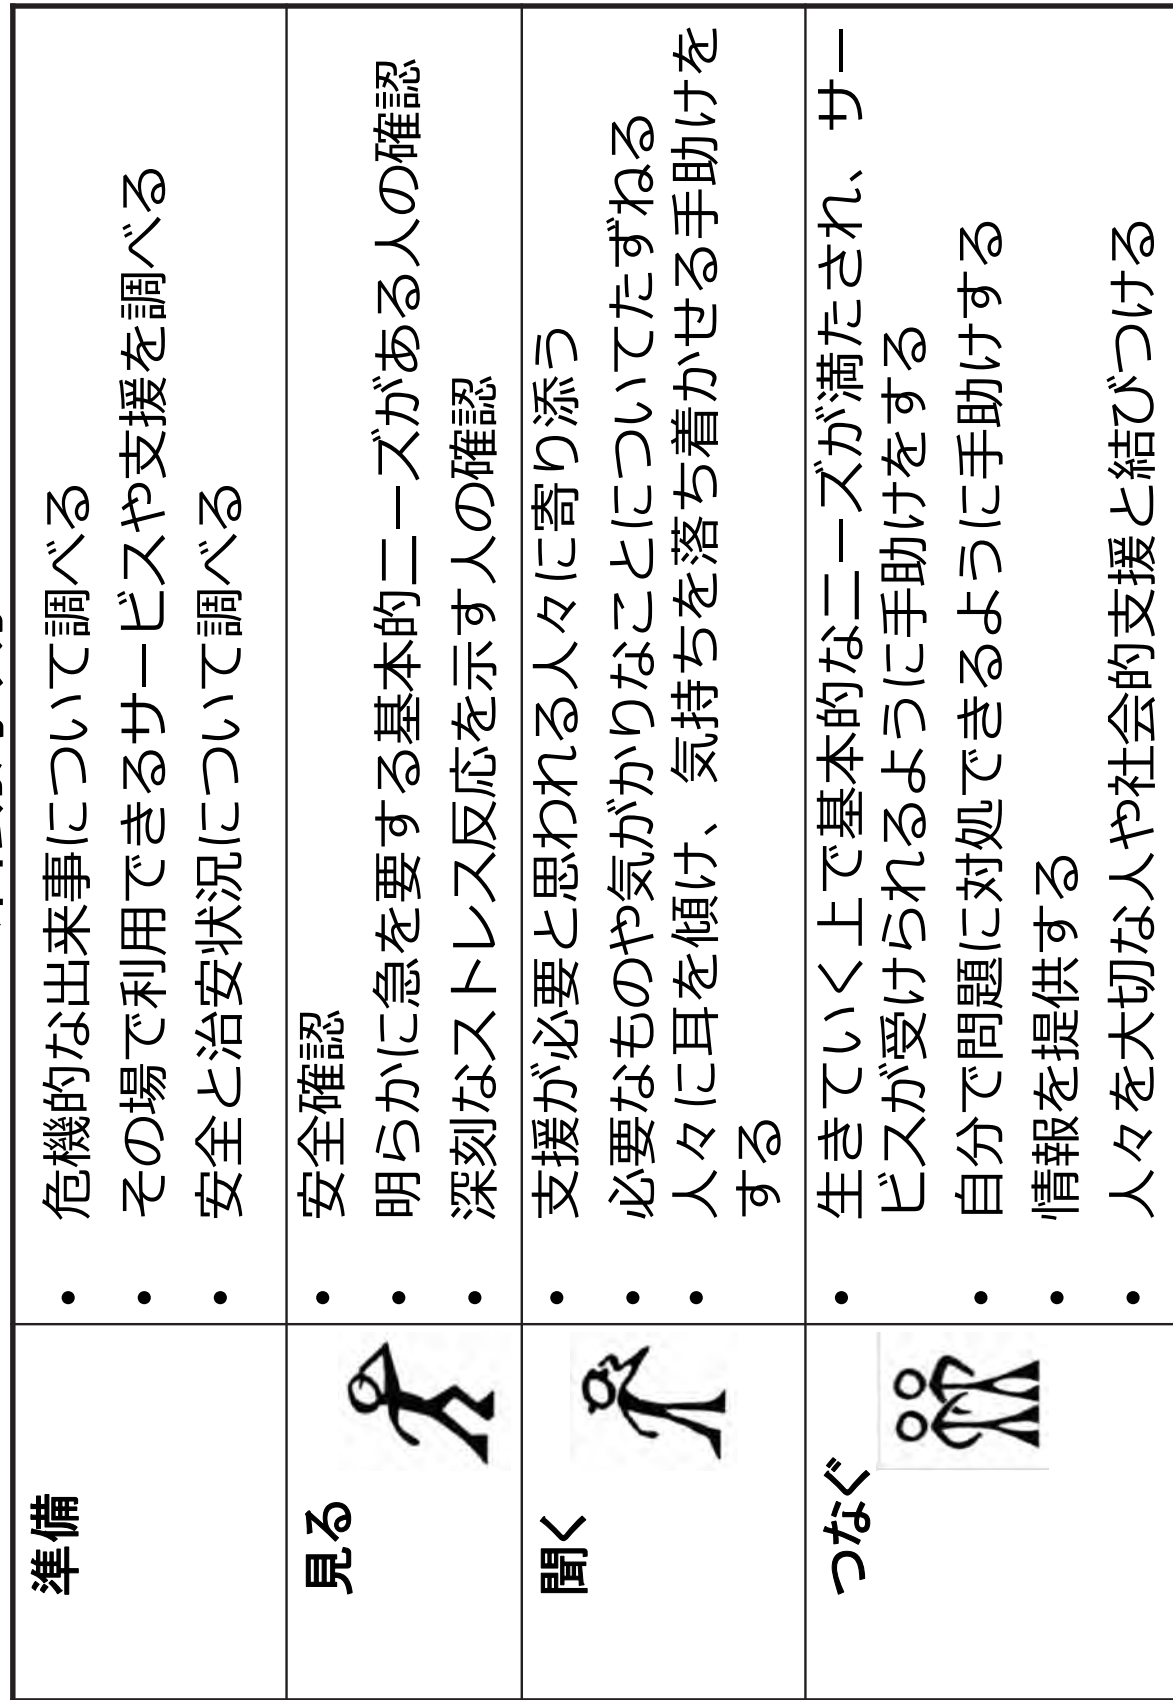 準備
• 危機的な出来事について調べる
• その場で利用できるサービスや支援を調べる
• 安全と治安状況について調べる
見る
• 安全確認
• 明らかに急を要する基本的ニーズがある人の確認
• 深刻なストレス反応を示す人の確認
聞く
• 支援が必要と思われる人々に寄り添う
• 必要なものや気がかりなことについてたずねる
• 人々に耳を傾け、気持ちを落ち着かせる手助けを
する
つなぐ
• 生きていく上で基本的なニーズが満たされ、サー
ビスが受けられるように手助けをする
• 自分で問題に対処できるように手助けする
• 情報を提供する
• 人々を大切な人や社会的支援と結びつける